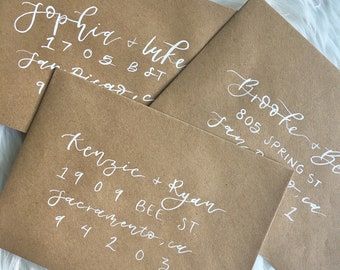 Sophia + Luke
1705 B ST
San Diego, ca
9
Brooke + Be
805 SPRING ST
San
1
Kenzie + Ryan
1909 BEE ST
Sacramento, ca
94203